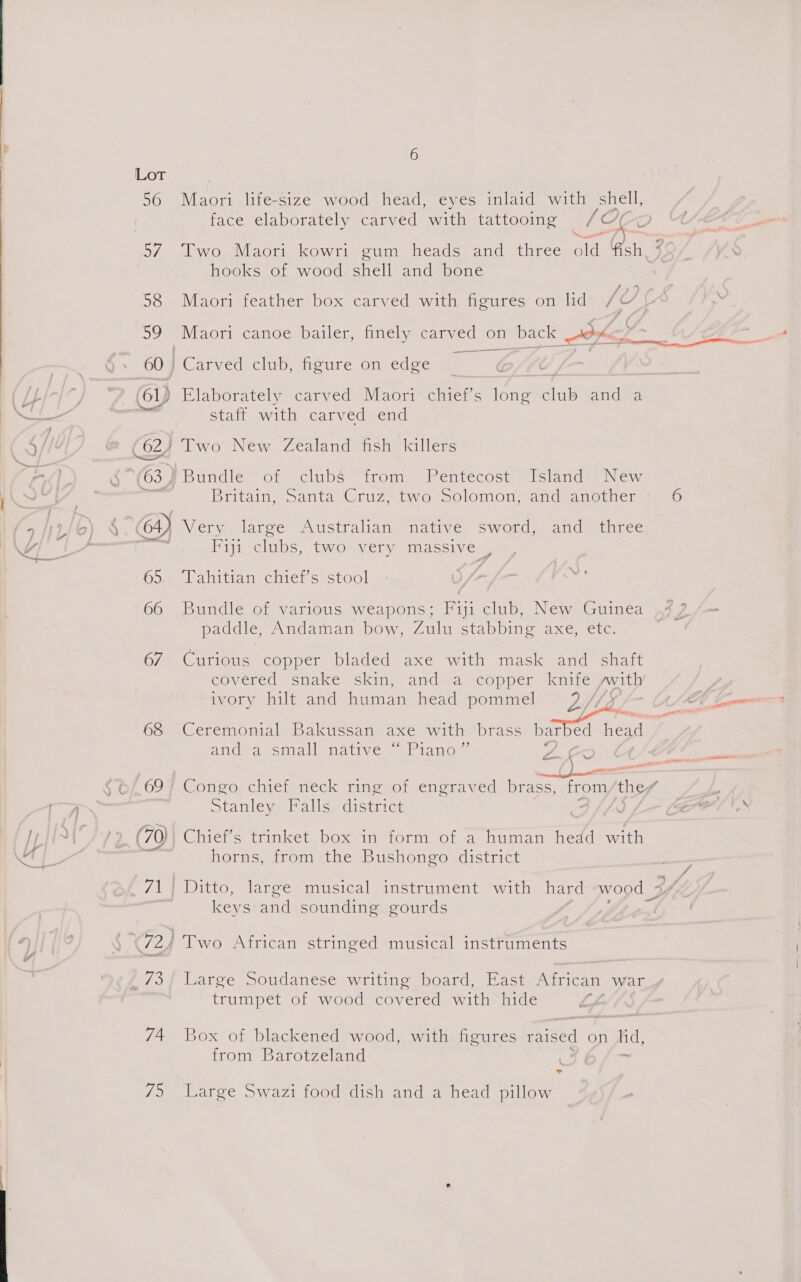 6
LOT
56 Maori life-size wood head, eyes inlaid with shell,
face elaborately carved with tattooing
57 Two Maori kowri gum heads and three old fish
hooks of wood shell and bone
58 Maori feather box carved with figures on lid
59 Maori canoe bailer, finely carved on back
60 Carved club, figure on edge
61 Elaborately carved Maori chief's long club and a
staff with carved end
62 Two New Zealand fish killers
63 Bundle of clubs from Pentecost Island New
Britain, Santa Cruz, two Solomon, and another 6
64 Very large Australian native sword, and three
Fiji clubs, two very massive
65 Tahitian chief's stool
66 Bundle of various weapons; Fiji club, New Guinea
paddle, Andaman bow, Zulu stabbing axe, etc.
67 Curious copper bladed axe with mask and shaft
covered snake skin, and a copper knife with
ivory hilt and human head pommel
68 Ceremonial Bakussan axe with brass barbed head
and a small native “ Piano ”
69 Congo chief neck ring of engraved brass, from the
Stanley Falls district
70 Chief's trinket box in form of a human head with
horns, from the Bushongo district
71 Ditto, large musical instrument with hard wood
keys and sounding gourds
72 Two African stringed musical instruments
73 Large Soudanese writing board, East African war
trumpet of wood covered with hide
74 Box of blackened wood, with figures raised on lid,
from Barotzeland
75 Large Swazi food dish and a head pillow